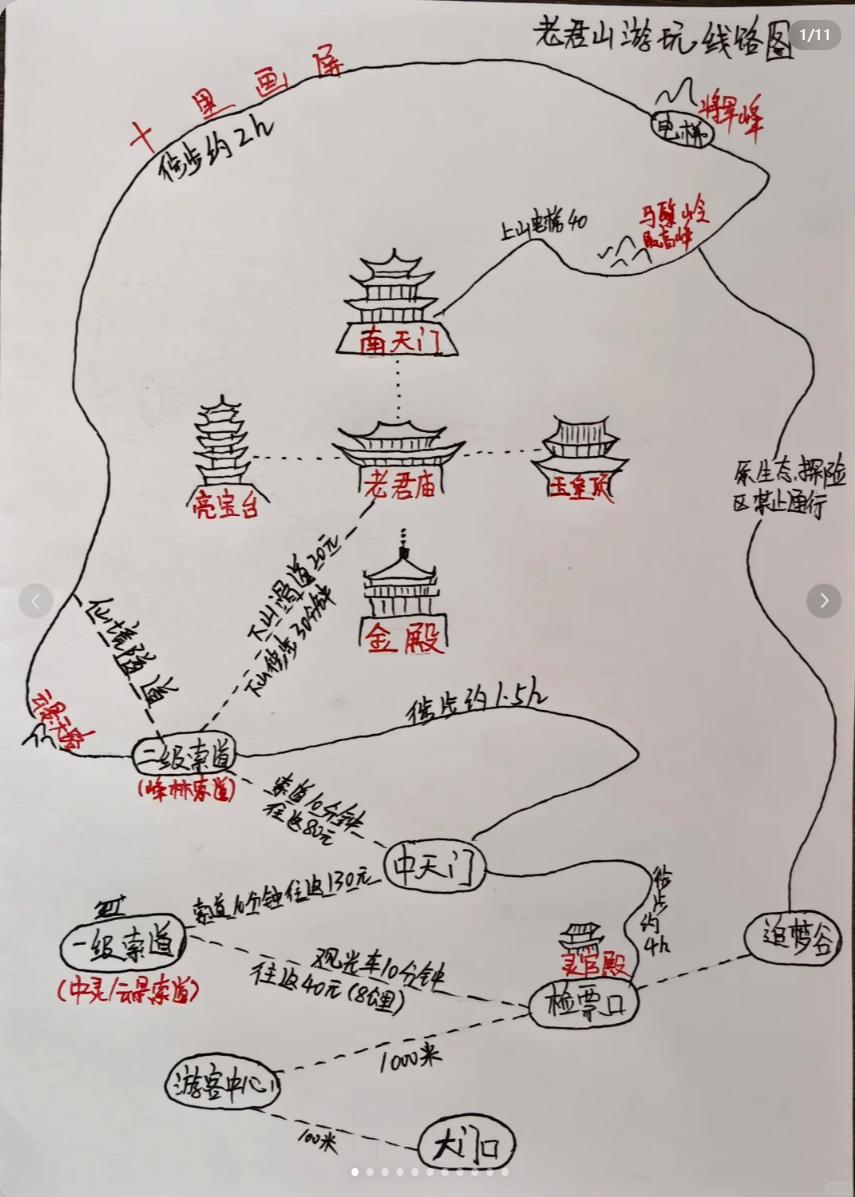 老君山游玩线路图
1/11
十里画屏
徒步约2h
将军峰
电梯
马鬃岭
最高峰
上山电梯40
南天门
亮宝台
老君庙
玉皇顶
原生态.探险
区禁止通行
下山滑道20元
下山徒步30分钟
金殿
仙境隧道
云景天路
二级索道
(峰林索道)
徒步约1.5h
索道10分钟
往返80元
中天门
索道10分钟往返130元
徒步约4h
一级索道
(中灵/云景索道)
观光车10分钟
往返40元(8公里)
灵官殿
检票口
追梦谷
1000米
游客中心
100米
大门口